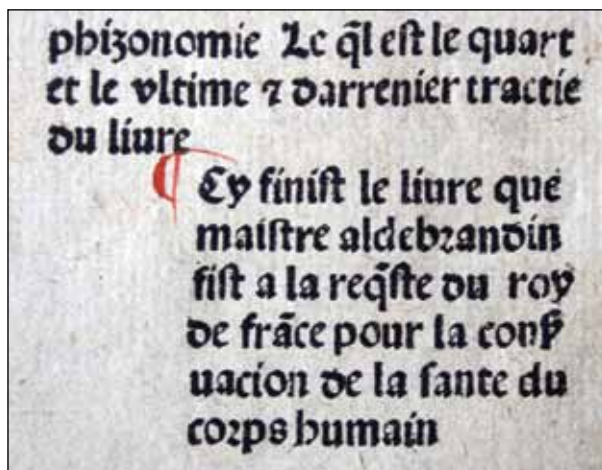 phizonomie Le q̃l est le quart
et le vltime ⁊ darrenier tractie
du liure
¶ Cy finist le liure que
maistre aldebrandin
fist a la req̃ste du roy
de frãce pour la conſ̃
uacion de la sante du
corps humain